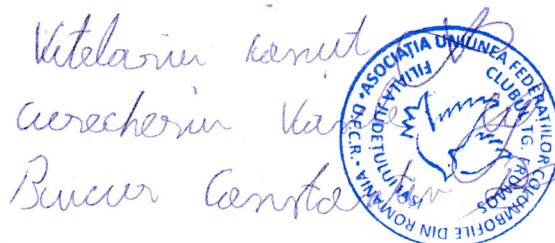 Vitelariu Ionut
Curecheriu
Bucur Constantin
ASOCIAȚIA UNIUNEA FEDERAȚIILOR COLUMBOFILE DIN ROMANIA - U.F.C.R.
FILIALA JUDEȚULUI IAȘI
CLUBUL TG. FRUMOS